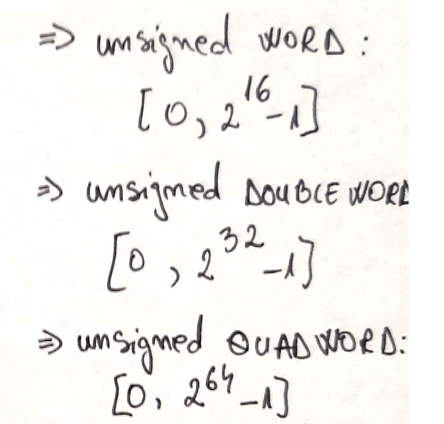 => unsigned WORD:
[0, 2^16-1]
=> unsigned DOUBLE WORD
[0, 2^32-1]
=> unsigned QUADWORD:
[0, 2^64-1]